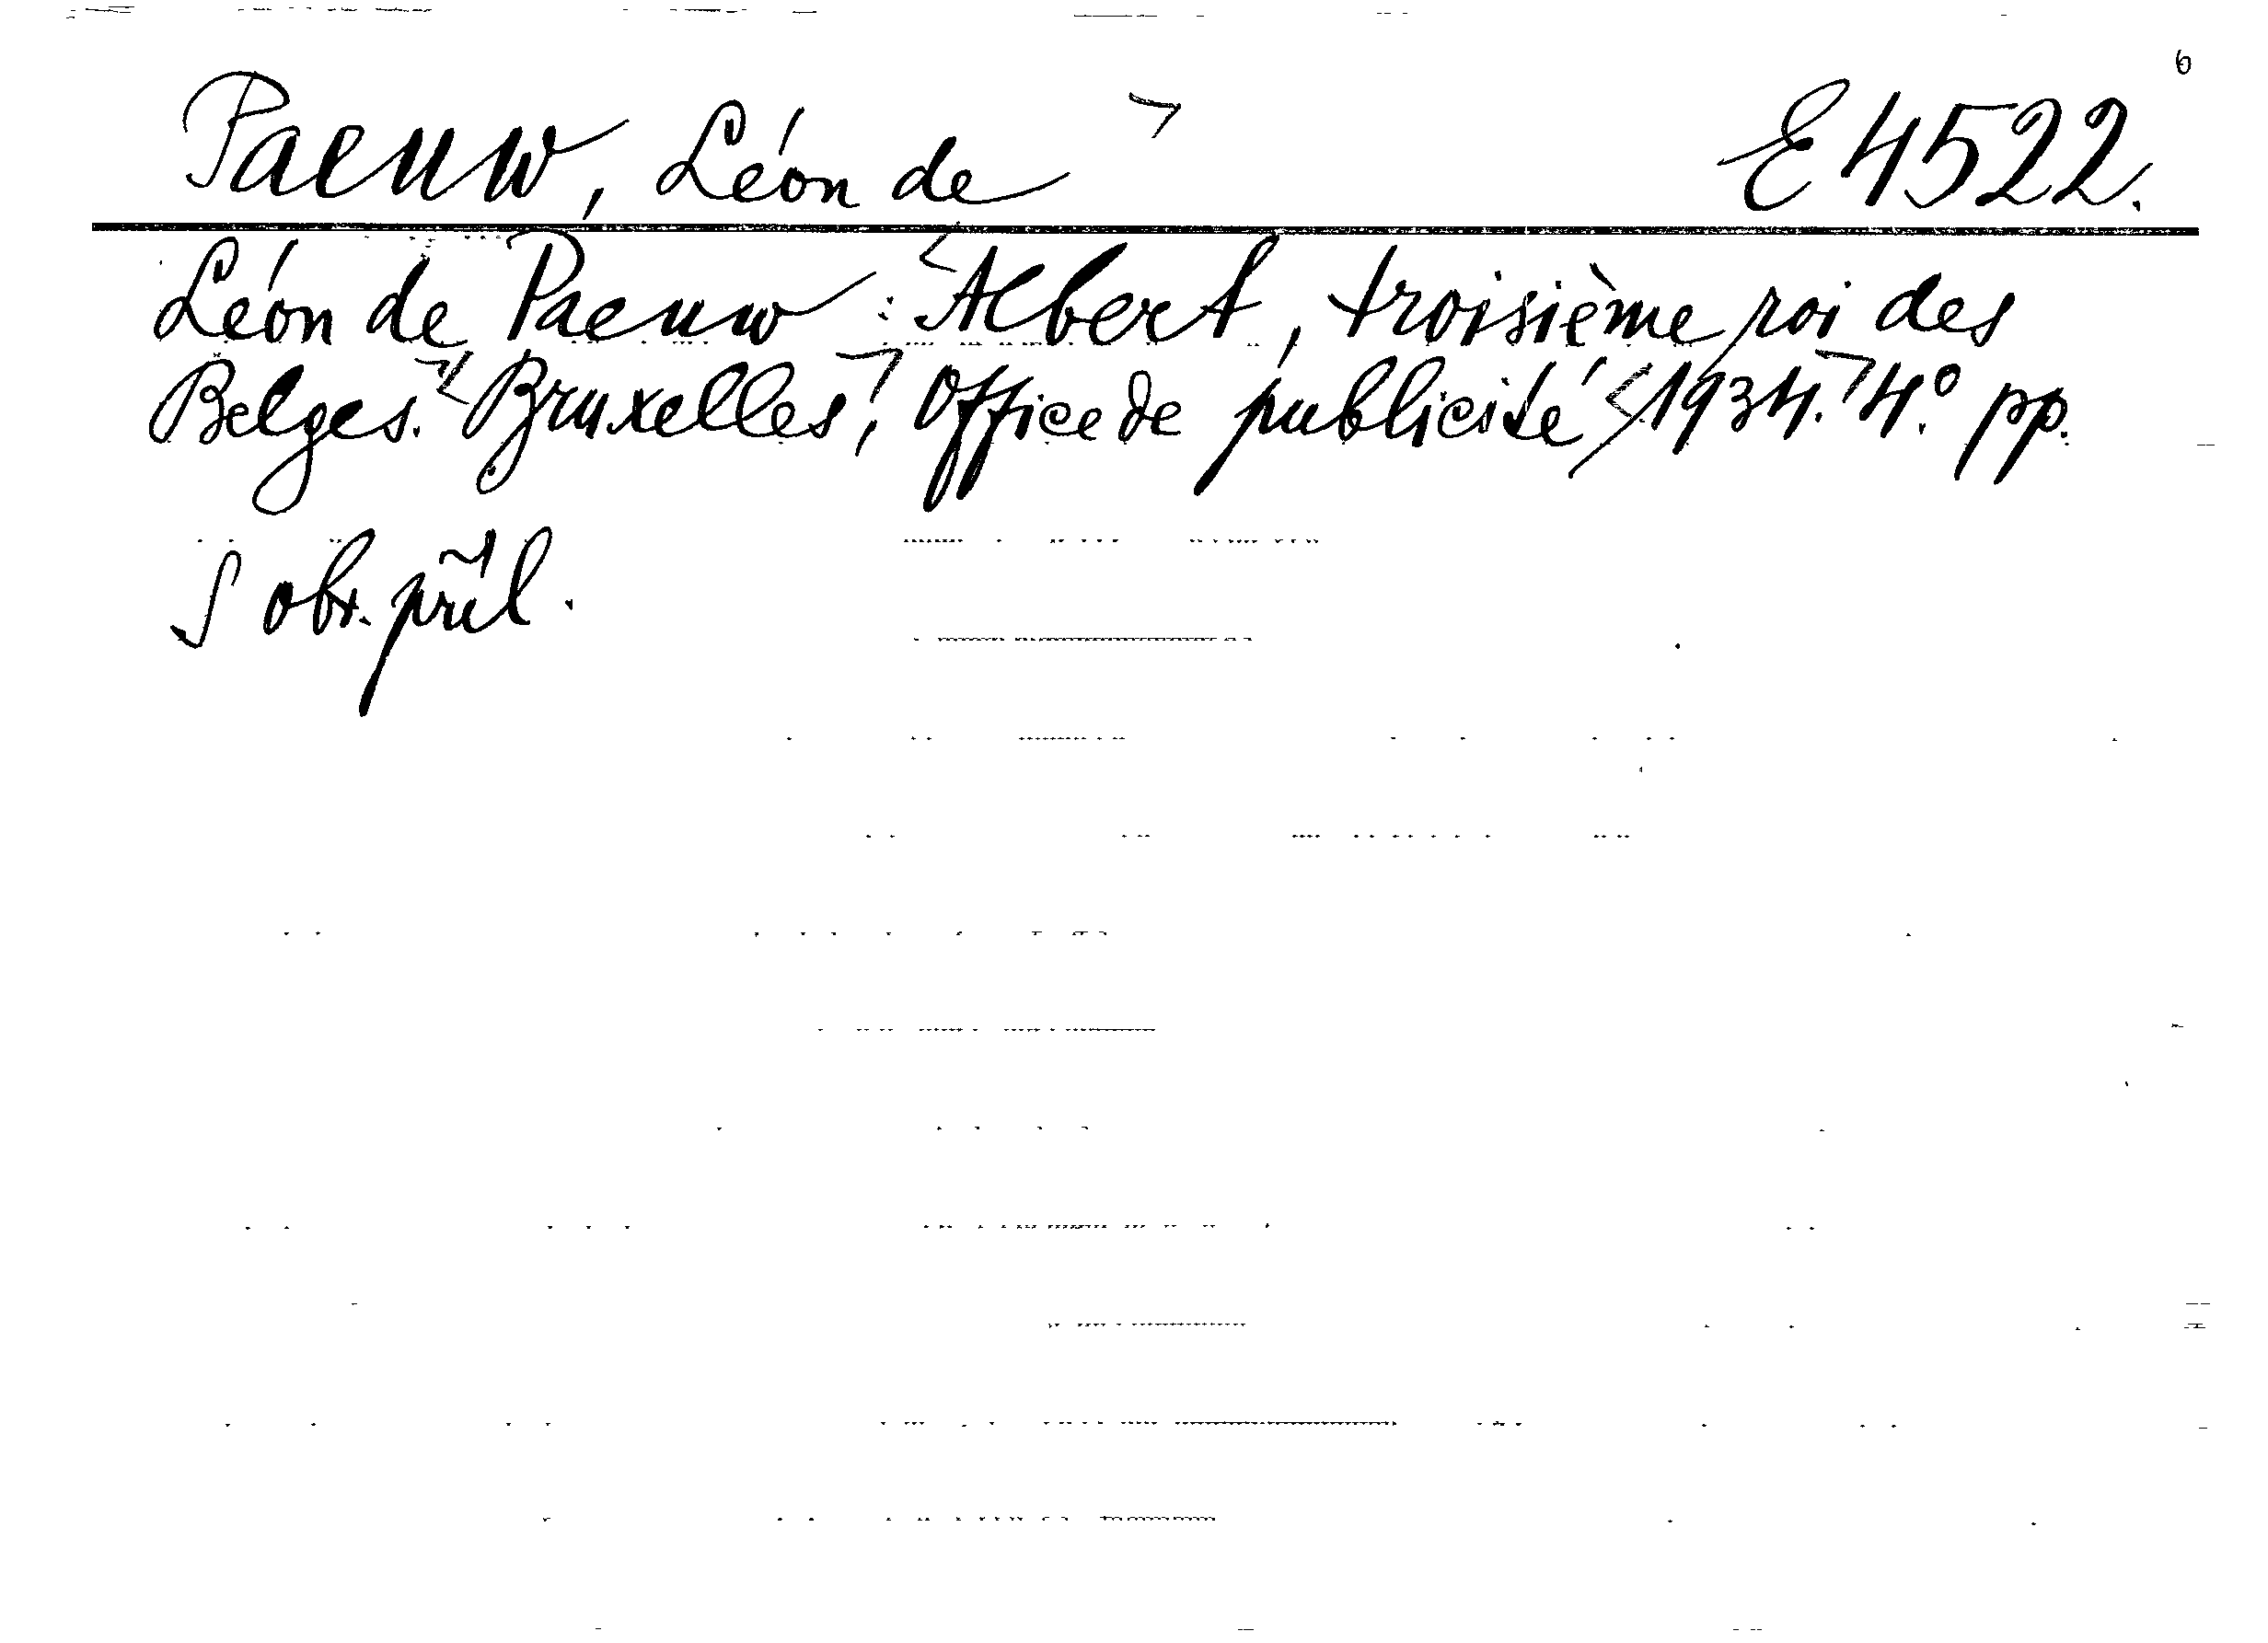 6
Paeuw, Léon de E 4522.
Léon de Paeuw : Albert, troisième roi des
Belges. Bruxelles, Office de publicité, 1934. 4.° pp.
S obr. příl.